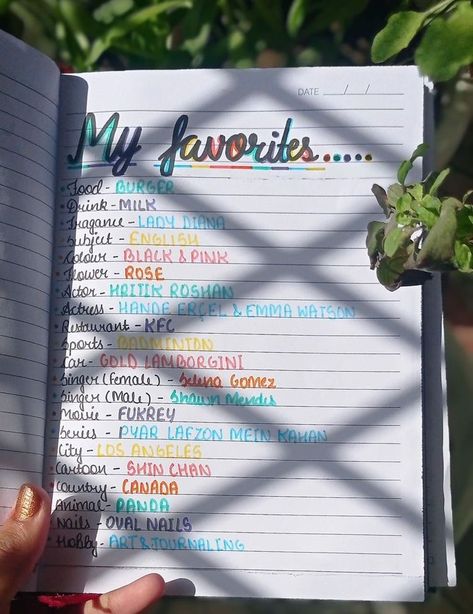 DATE __/__/__
My favorites.....
Food - BURGER
Drink - MILK
Fragance - LADY DIANA
Subject - ENGLISH
Colour - BLACK & PINK
Flower - ROSE
Actor - HRITIK ROSHAN
Actress - HANDE ERÇEL & EMMA WATSON
Restaurant - KFC
Sports - BADMINTON
Car - GOLD LAMBORGINI
Singer (Female) - Selena Gomez
Singer (Male) - Shawn Mendes
Movie - FUKREY
Series - PYAR LAFZON MEIN KAHAN
City - LOS ANGELES
Cartoon - SHIN CHAN
Country - CANADA
Animal - PANDA
Nails - OVAL NAILS
Hobby - ART & JOURNALING